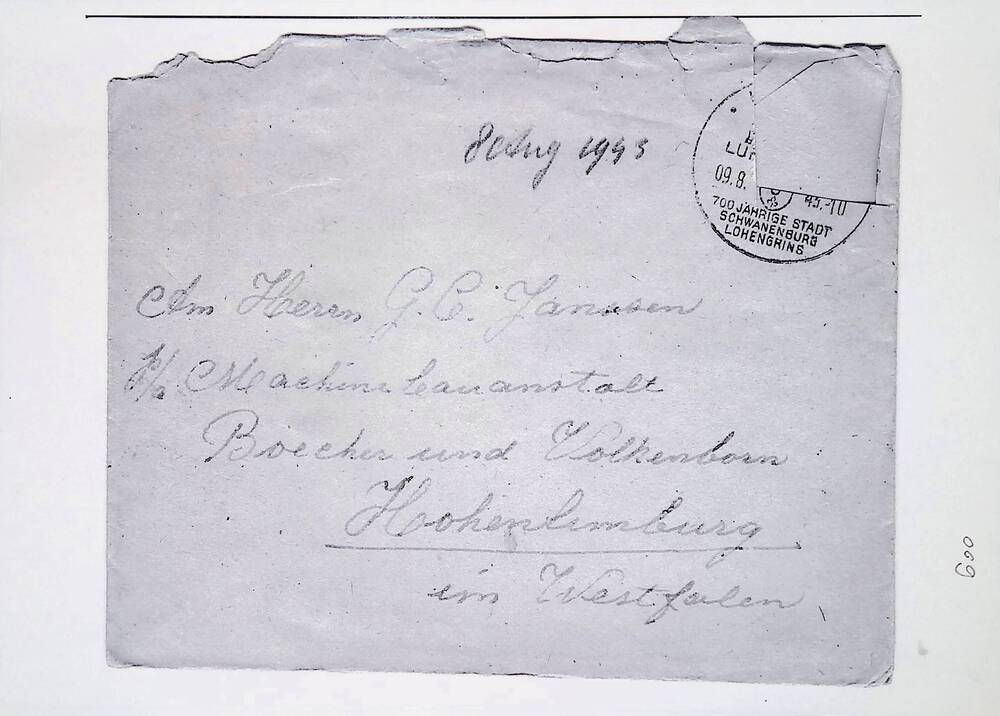 8 Aug 1943
09.8. 43.-10
700 JÄHRIGE STADT
SCHWANENBURG
LOHENGRINS
Am Herrn G. C. Janssen
p/a Machinebauanstalt
Boecher und Volkenborn
Hohenlimburg
im Westfalen
600